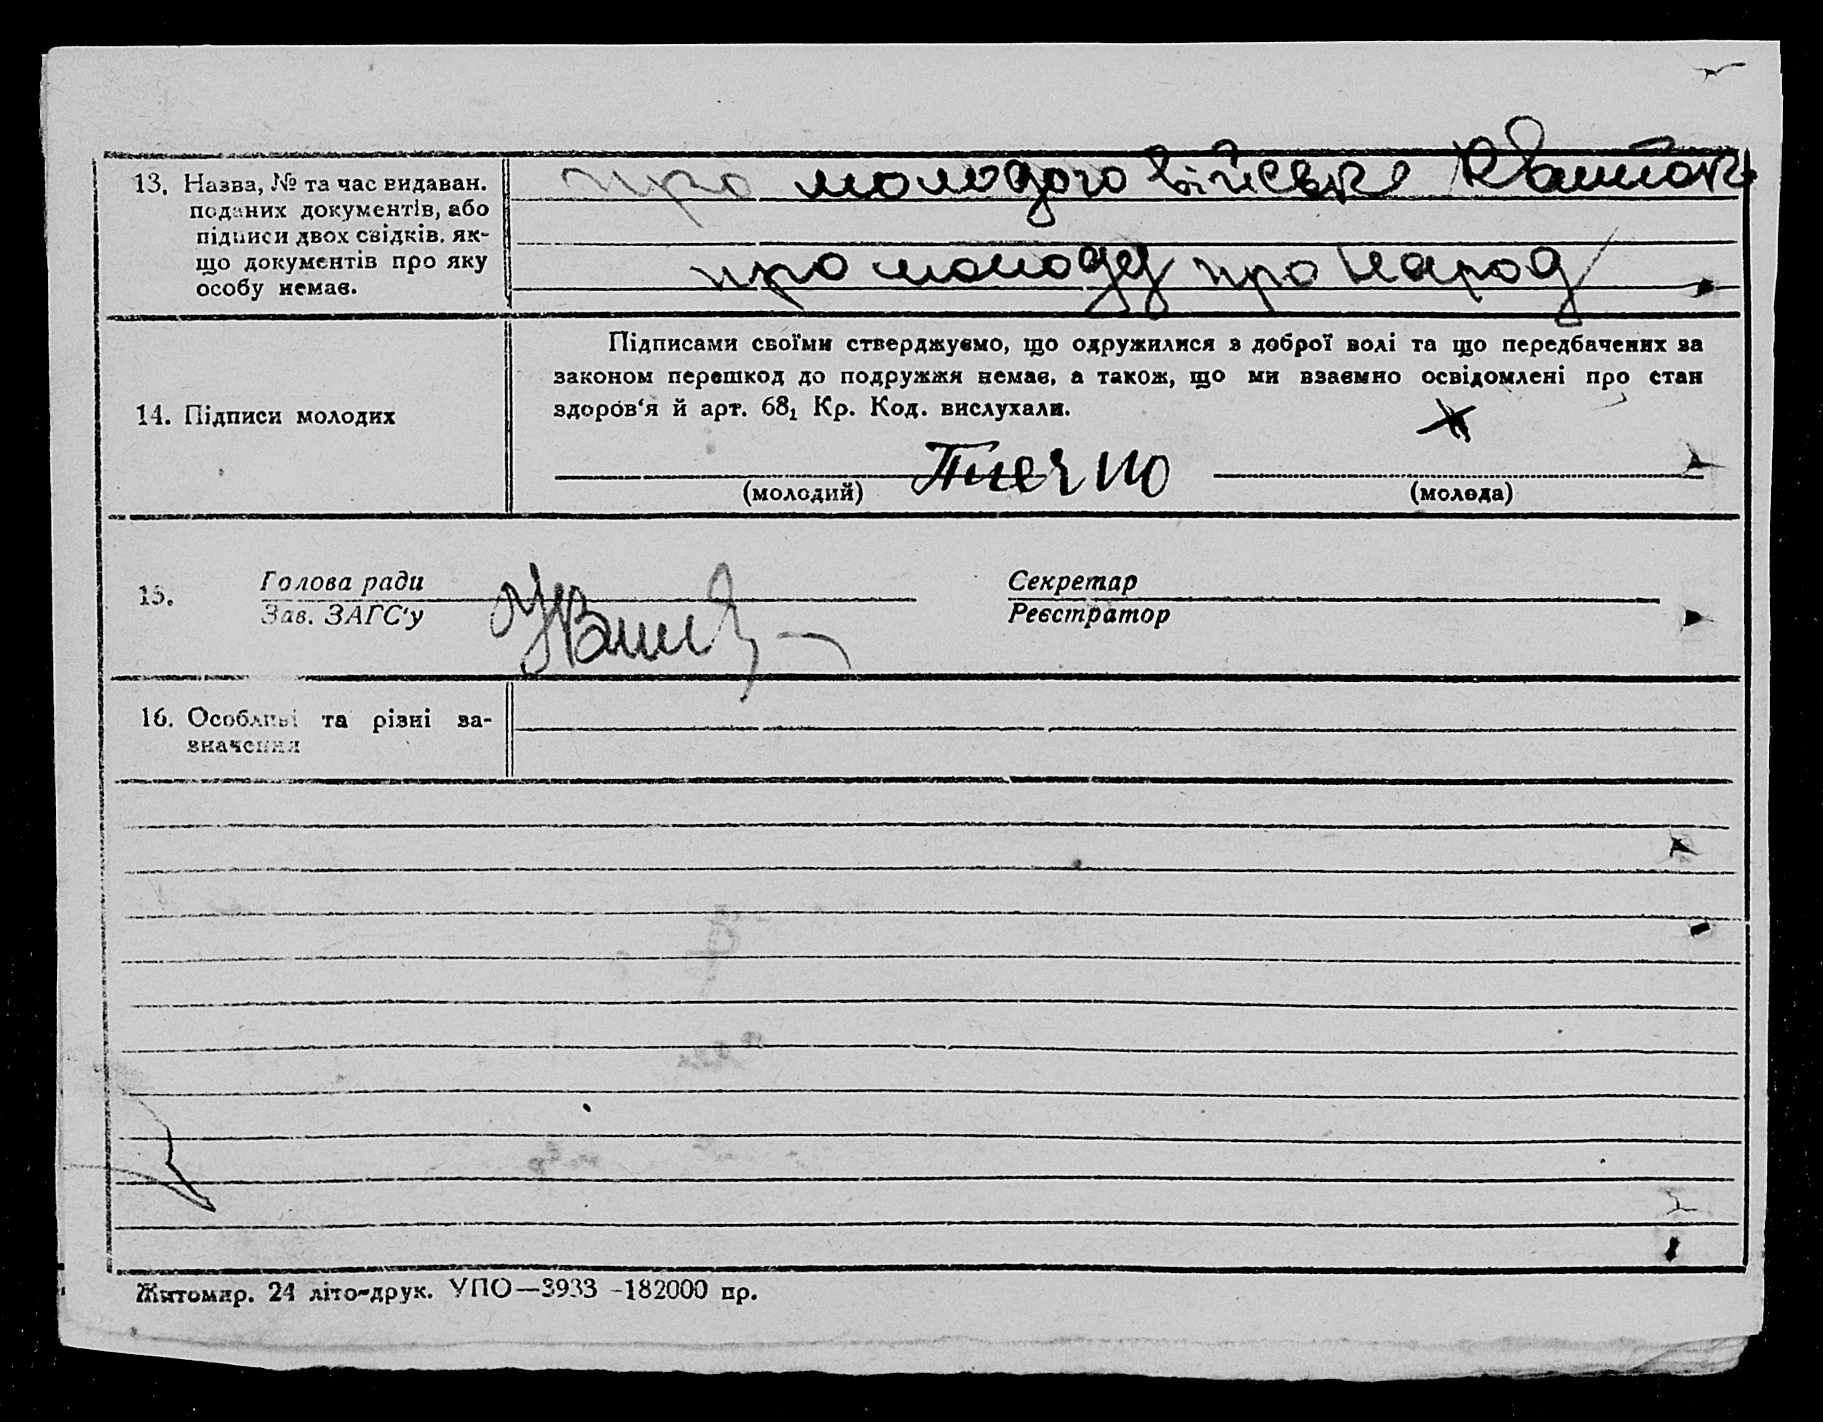 13. Назва, № та час видаван. поданих документів, або підписи двох свідків, якщо документів про яку особу немає.
про молодого військ
про молоду про народ
14. Підписи молодих
Підписами своїми стверджуємо, що одружилися з доброї волі та що передбачених за
законом перешкод до подружжя немає, а також, що ми взаємно освідомлені про стан
здоров'я й арт. 68₁ Кр. Код. вислухали.
(молодий)
(молода)
15.
Голова ради
Зав. ЗАГС'у
Секретар
Реєстратор
16. Особливі та різні за-
значення
Житомир. 24 літо-друк. УПО—3933 -182000 пр.